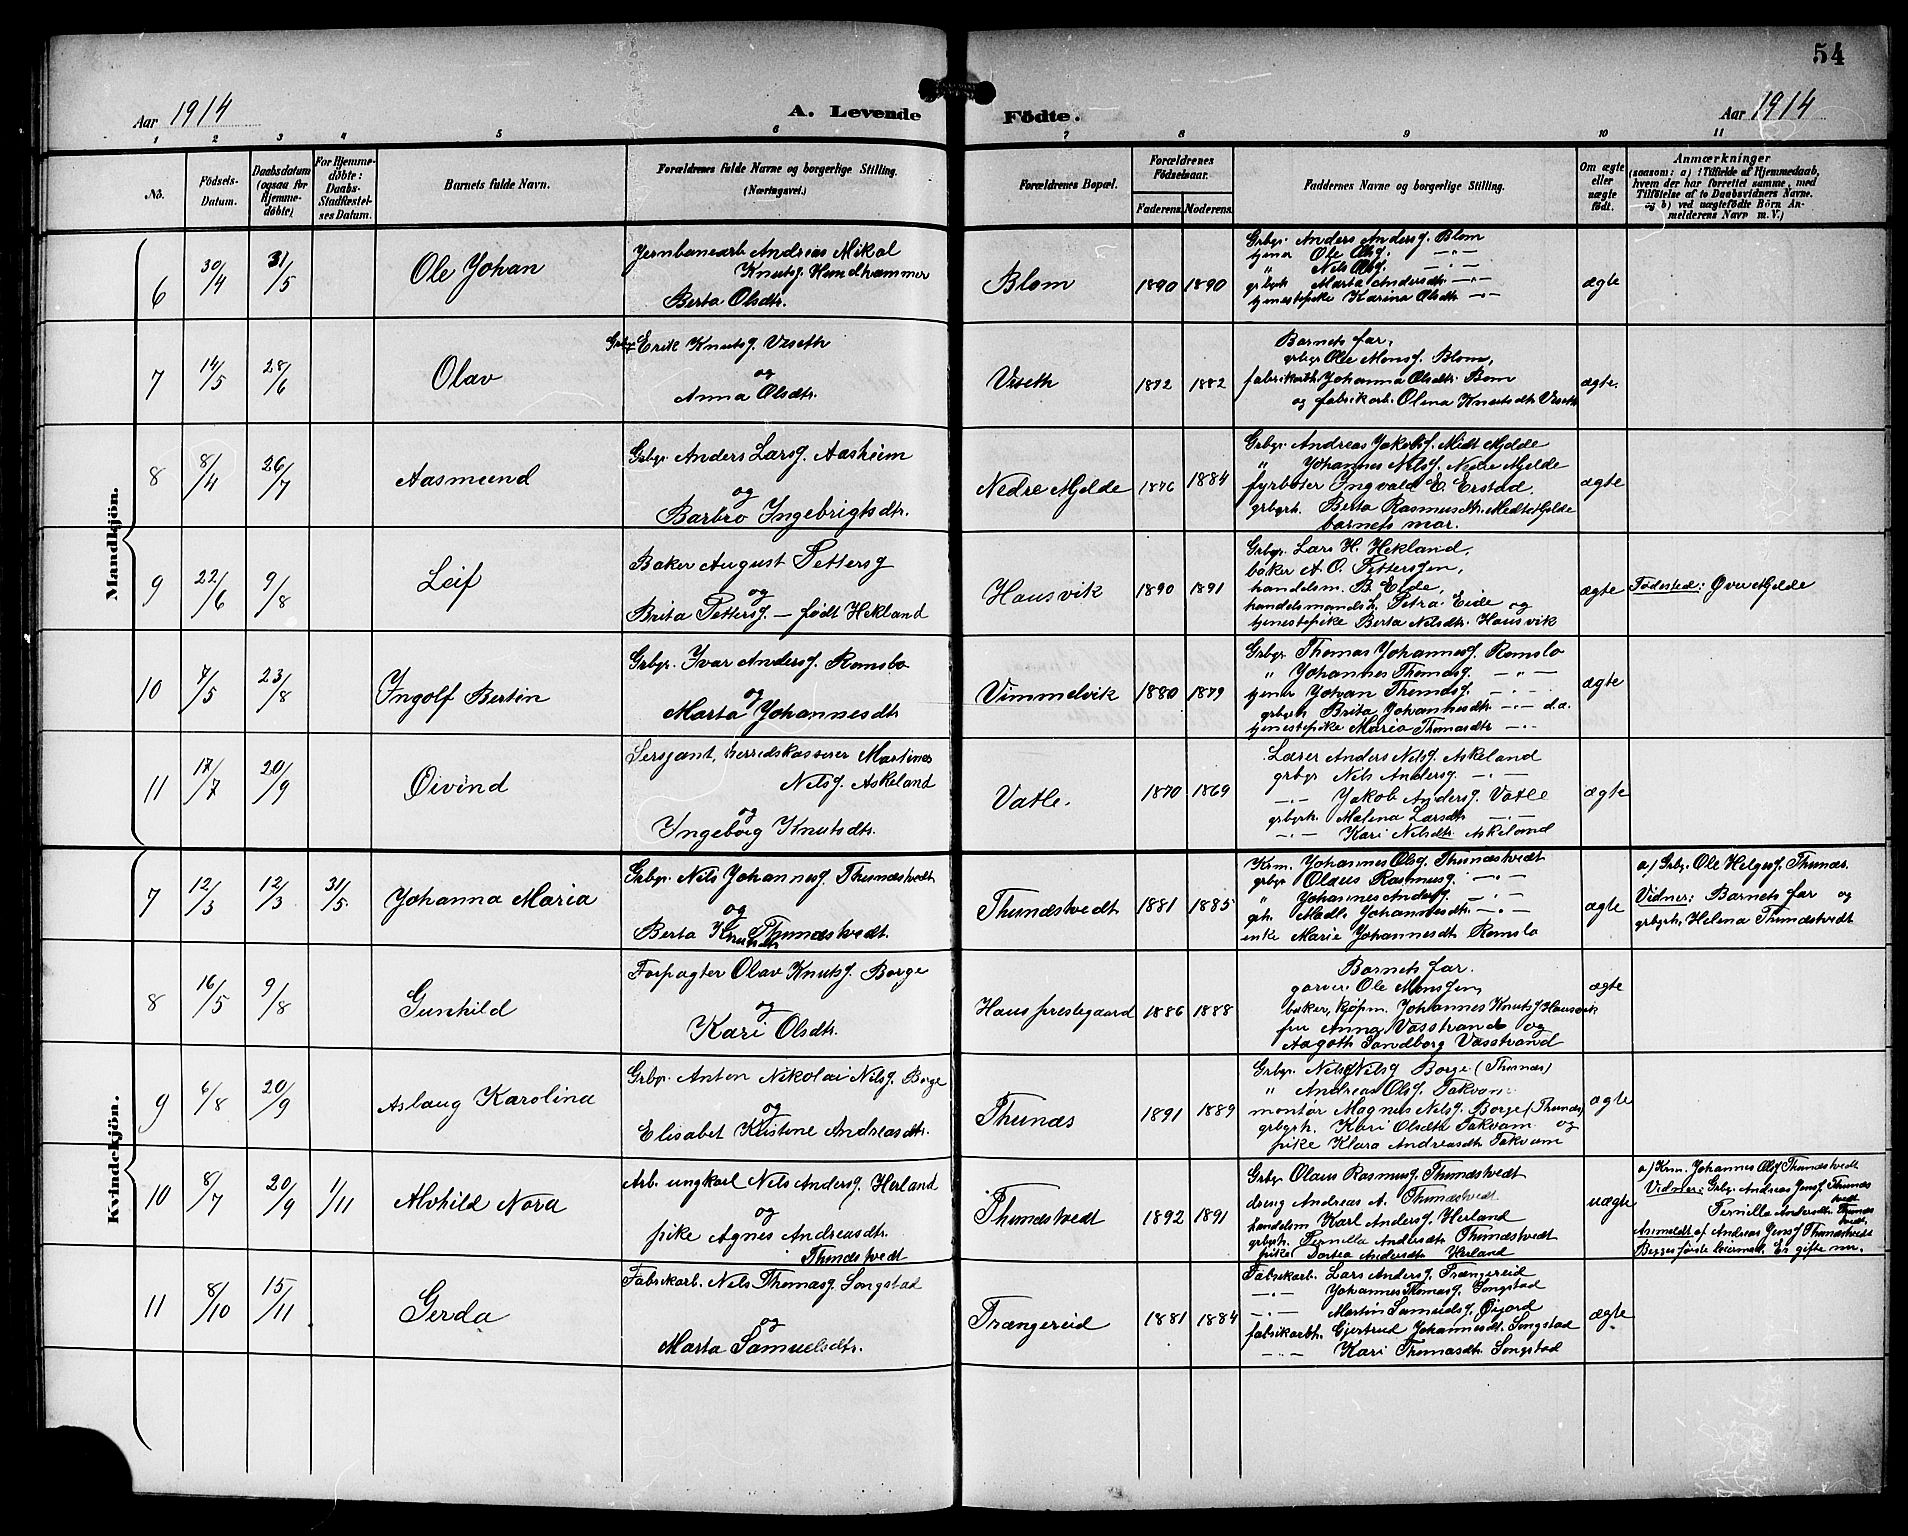 54
Aar 1914
A. Levende Födte.
Aar 1914
1 2 3 4 5 6 7 8 9 10 11
No.
Födsels-Datum.
Daabsdatum (ogsaa for Hjemmedöbte)
For Hjemmedöbte: Daabs-Stadfæstelses Datum.
Barnets fulde Navn.
Forældrenes fulde Navne og borgerlige Stilling. (Næringsvei.)
Forældrenes Bopæl.
Forældrenes Födselsaar.
Faderens. Moderens.
Faddernes Navne og borgerlige Stilling.
Om ægte eller uægte födt.
Anmærkninger
(saasom: a) i Tilfælde af Hjemmedaab, hvem der har forrettet samme, med Tilföielse af to Daabsvidners Navne. og b) ved uægtefödte Börn Anmelderens Navn m. V.)
Mandkjön.
6 30/4 31/5 Ole Johan
Jernbanearb. Andreas Mikal
Knutsg. Hundhammer
Berta Olsdtr.
Blom 1890 1890
Grbgr. Anders Andersg. Blom
tjener Ole Olsg. — " —
" Nils Olsg. — " —
grbgrh. Marta Andersdtr. — " —
tjenestepike Karina Olsdtr. — " —
ægte
7 14/5 28/6 Olav
Grbgr. Erik Knutsg. Veseth
og
Anna Olsdtr.
Veseth 1872 1882
Barnets far,
grbgr. Ole Monsg. Blom,
fabrikarbh. Johanna Olsdtr. Bom
og fabrikarb. Olina Knutsdtr. Veseth
ægte.
8 8/4 26/7 Aasmund
Grbgr. Anders Larsg. Aasheim
og
Barbro Ingebrigtsdtr.
Nedre Mjelde 1876 1884
Grbgr. Andreas Jakobsg. Midt Mjelde
" Johannes Nilsg. Nedre Mjelde
fyrbøter Ingvald E. Erstad,
grbgrh. Berta Rasmusdtr. Midt Mjelde
barnets mor.
ægte
9 22/6 9/8 Leif
Baker August Pettersg
og
Brita Pettersg. — født Hekland
Hausvik 1890 1891
Grbgr. Lars H. Hekland,
baker A. O. Pettersgen,
handelsm. B. Eide,
handelsmandsh. Petra Eide og
tjenestepike Berta Nilsdtr. Hausvik
ægte
Fødested: Øvre Mjelde
10 7/5 23/8 Ingolf Bertin
Grbgr. Ivar Andersg. Romslo
og
Marta Johannesdtr
Vimmelvik 1880 1879
Grbgr. Thomas Johannesg. Romslo
" Johannes Thomasg. — " —
tjener Johan Thomasg. — " —
grbgrh. Brita Johannesdtr. — " — d.a.
tjenestepike Maria Thomasdtr. — " —
ægte
11 17/7 20/9 Øivind
Sersjant, herredskasserer Martinus
Nilsg. Askeland
og
Ingeborg Knutsdtr.
Vatle. 1870 1869
Lærer Anders Nilsg. Askeland
grbgr Nils Andersg. — " —
— " — Jakob Andersg. Vatle
grbgrh. Malena Larsdtr. — " —
— " — Kari Nilsdtr. Askeland
ægte
Kvindekjön.
7 12/3 12/3 31/5. Johanna Maria
Grbgr. Nils Johannesg. Thunæstvedt
og
Berta Knutsdtr. Thunæstvedt.
Thunæstvedt 1881 1885
Krm. Johannes Olsg. Thunæstvedt
grbgr Olaus Rasmusg. — " —
" Johannes Andersg. — " —
gth. Madli Johannesdtr. — " —
enke Marie Johannesdtr. Romslo
ægte
a) Grbgr. Ole Helgesg. Thunæs.
Vidner: Barnets far og
grbgrh. Helena Thunæstvedt
8 16/5 9/8 Gunhild
Forpagter Olav Knutsg. Borge
og
Kari Olsdtr.
Haus prestegaard 1886 1888
Barnets far.
garver Ole Monsgen,
baker, kjøpm. Johannes Knutsg. Hausvik
fru Anna Vasstrand og
Aagoth Sandborg Vasstrand
ægte
9 6/8 20/9 Aslaug Karolina
Grbgr. Anton Nikolai Nilsg. Borge
og
Elisabet Kristine Andreasdtr.
Thunæs 1891 1889
Grbgr. Nils Nilsg Borge (Thunæs)
" Andreas Olsg. Takvam
montør Magnus Nilsg. Borge (Thunæs)
grbgrh. Kari Olsdtr Takvam og
pike Klara Andreasdtr Takvam
ægte
10 8/7 20/9 1/11 Alvhild Nora
Arb. ungkarl Nils Andersg. Herland
og
pike Agnes Andreasdtr.
Thunæstvedt
Thunæstvedt 1892 1891
Grbgr Olaus Rasmusg. Thunæstvedt
dreng Andreas A. Thunæstvedt
handelsm Karl Andersg. Herland
grbgrh. Pernilla Andersdtr Thunæstvedt
pike Dortea Andersdtr Herland
uægte
a) Krm. Johannes Olsg Thunæstvedt
Vidner: Grbgr. Andreas Jensg. Thunæstvedt
Pernilla Andersdtr. Thunæstvedt.
Anmeldt af Andreas Jensg Thunæstvedt
Begges første leiermaal. Er gifte nu.
11 8/10 15/11 Gerda
Fabrikarb. Nils Thomasg. Songstad
og
Marta Samuelsdtr.
Trængereid 1881 1884
Fabrikarb. Lars Andersg. Trængereid
— " — Johannes Thomasg. Songstad
— " — Martin Samuelsg. Øijord
fabrikarbh. Gjertrud Johannesdtr. Songstad
— " — Kari Thomasdtr. Songstad
ægte